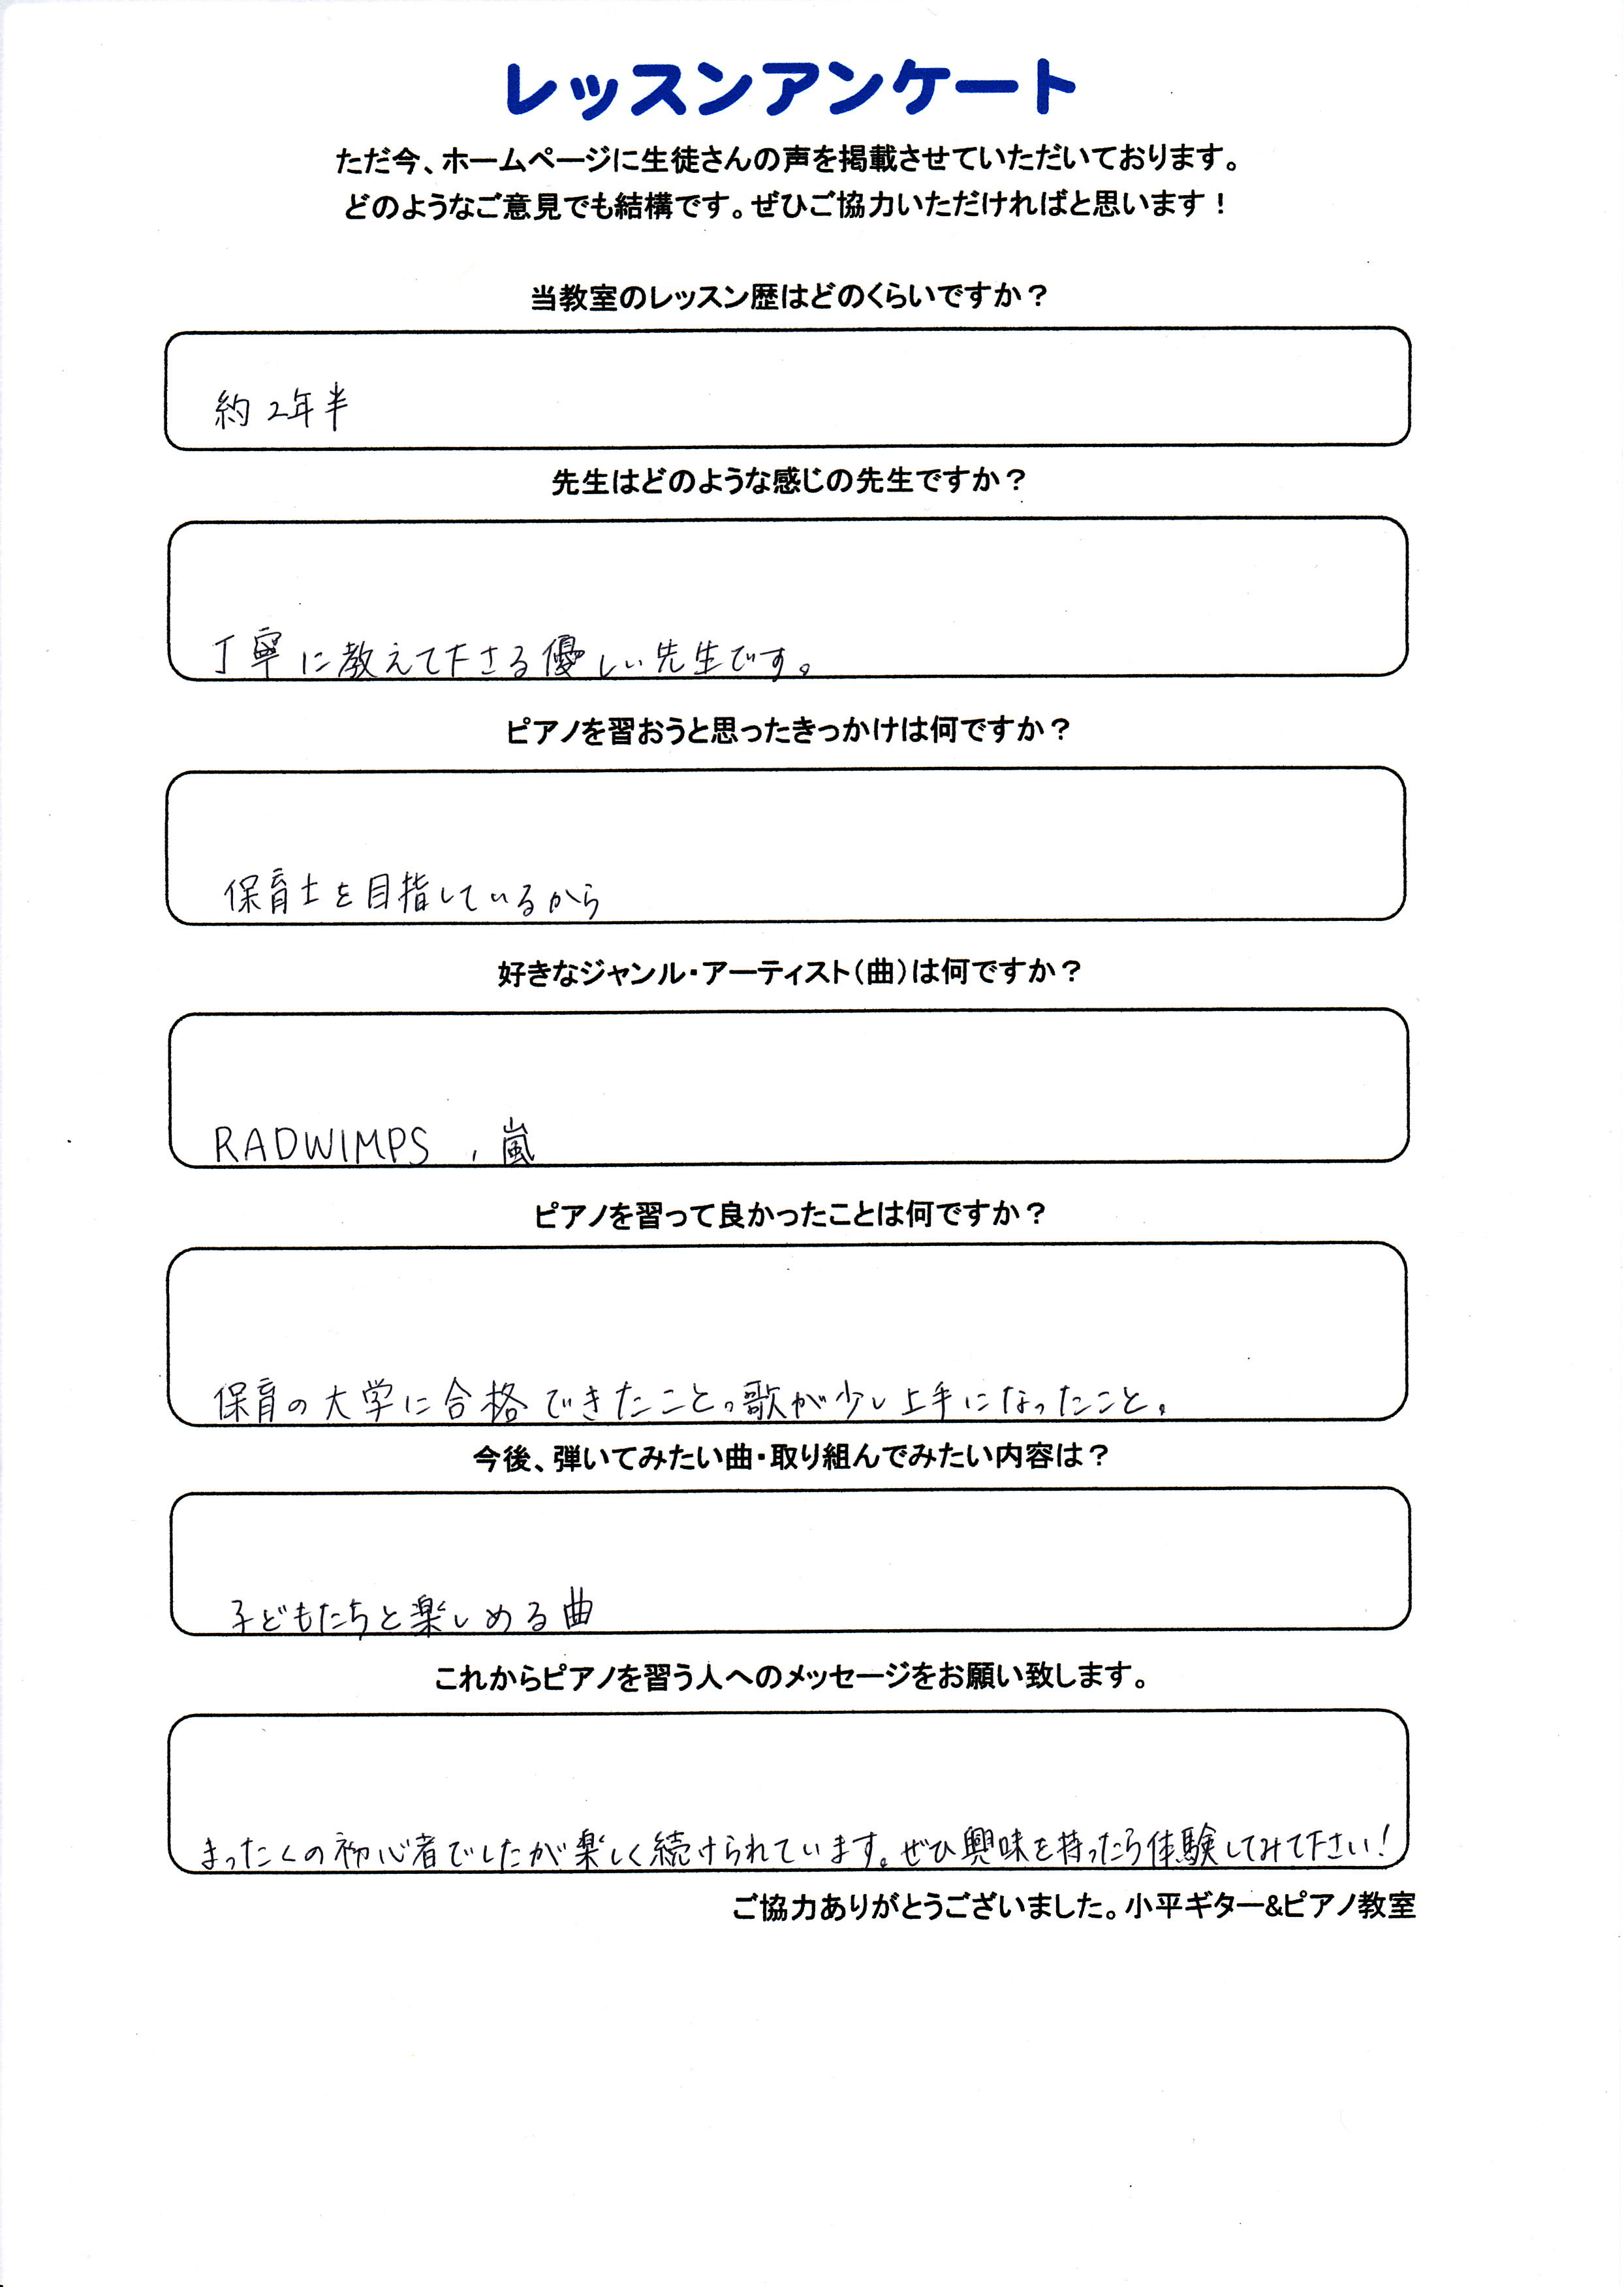 レッスンアンケート
ただ今、ホームページに生徒さんの声を掲載させていただいております。
どのようなご意見でも結構です。ぜひご協力いただければと思います！
当教室のレッスン歴はどのくらいですか？
約2年半
先生はどのような感じの先生ですか？
丁寧に教えて下さる優しい先生です。
ピアノを習おうと思ったきっかけは何ですか？
保育士を目指しているから
好きなジャンル・アーティスト（曲）は何ですか？
RADWIMPS ，嵐
ピアノを習って良かったことは何ですか？
保育の大学に合格できたこと。歌が少し上手になったこと。
今後、弾いてみたい曲・取り組んでみたい内容は？
子どもたちと楽しめる曲
これからピアノを習う人へのメッセージをお願い致します。
まったくの初心者でしたが楽しく続けられています。ぜひ興味を持ったら体験してみて下さい！
ご協力ありがとうございました。小平ギター&ピアノ教室